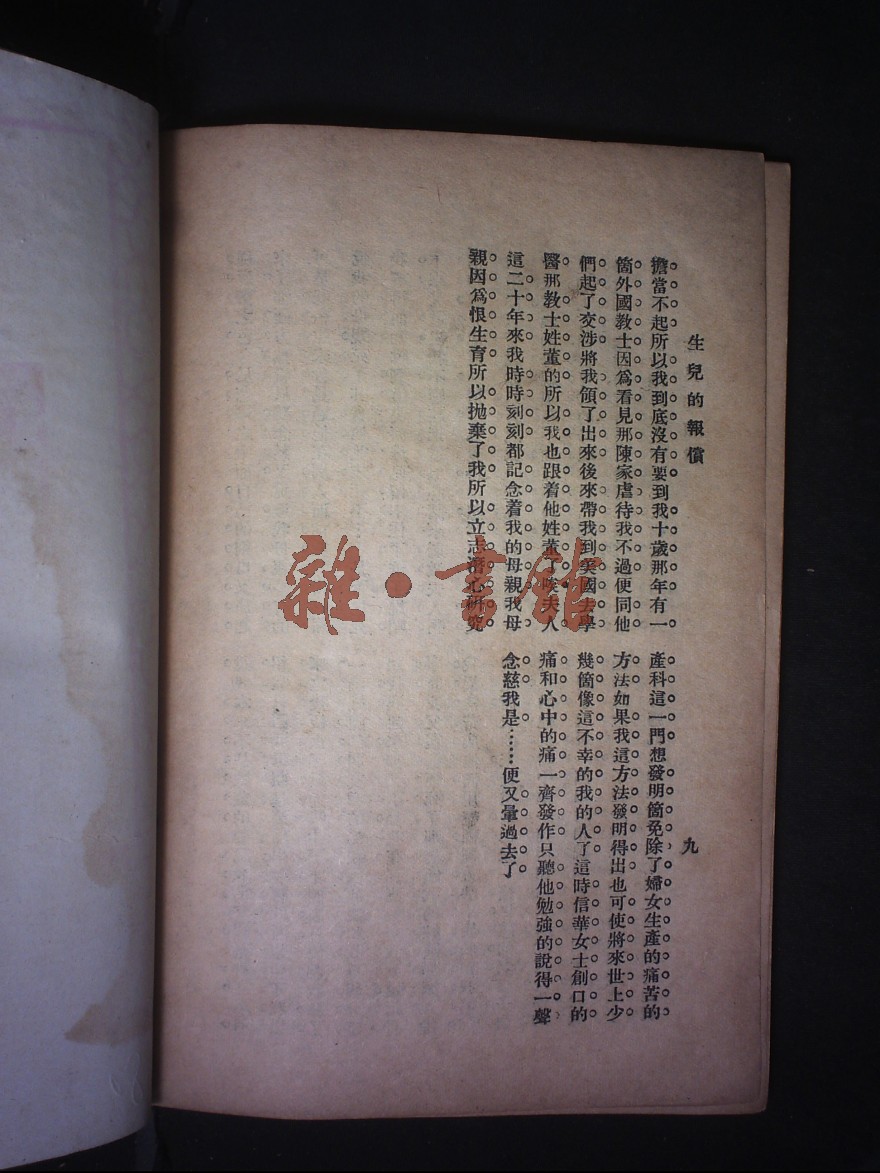 生兒的報償
九
擔當不起所以我到底沒有要到我十歲那年有一
箇外國教士因爲看見那陳家虐待我不過便同他
們起了交涉將我領了出來後來帶我到美國去學
醫那教士姓董的所以我也跟着他姓董了唉夫人
這二十年來我時時刻刻都記念着我的母親我母
親因爲恨生育所以拋棄了我所以立志潛心研究
產科這一門想發明箇免除了婦女生產的痛苦的
方法如果我這方法發明得出也可使將來世上少
幾箇像這不幸的我的人了這時信華女士創口的
痛和心中的痛一齊發作只聽他勉強的說得一聲
念慈我是……便又暈過去了
雜·書館